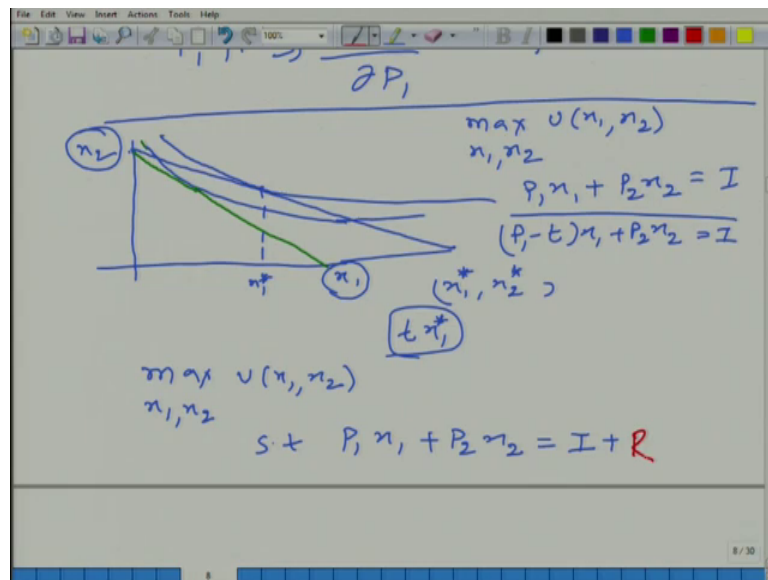 File Edit View Insert Actions Tools Help
100%
∂P₁
x₂
max U(x₁, x₂)
x₁, x₂
P₁x₁ + P₂x₂ = I
(P₁ - t)x₁ + P₂x₂ = I
x₁* x₁ (x₁*, x₂*)
t x₁*
max U(x₁, x₂)
x₁, x₂
s.t P₁x₁ + P₂x₂ = I + R
8 / 30
8